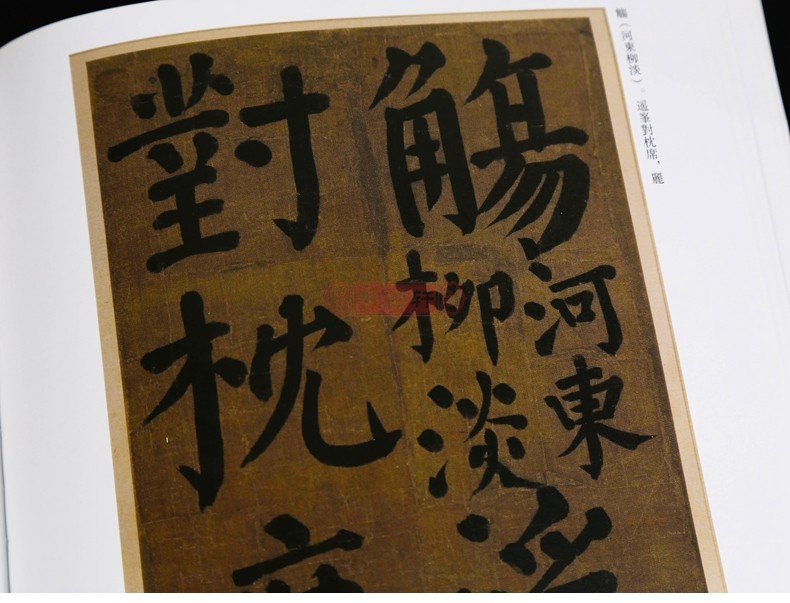 觴（河東柳淡）。遥峯對枕席，麗
觴
河東
柳淡
對枕